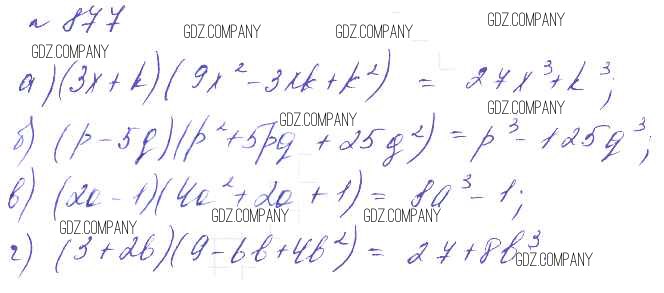 № 877
GDZ.COMPANY
GDZ.COMPANY GDZ.COMPANY GDZ.COMPANY
а) (3x + k)(9x² - 3xk + k²) = 27x³ + k³;
GDZ.COMPANY GDZ.COMPANY
б) (p - 5g)(p² + 5pg + 25g²) = p³ - 125g³;
в) (2a - 1)(4a² + 2a + 1) = 8a³ - 1;
GDZ.COMPANY GDZ.COMPANY GDZ.COMPANY
г) (3 + 2b)(9 - 6b + 4b²) = 27 + 8b³
GDZ.COMPANY